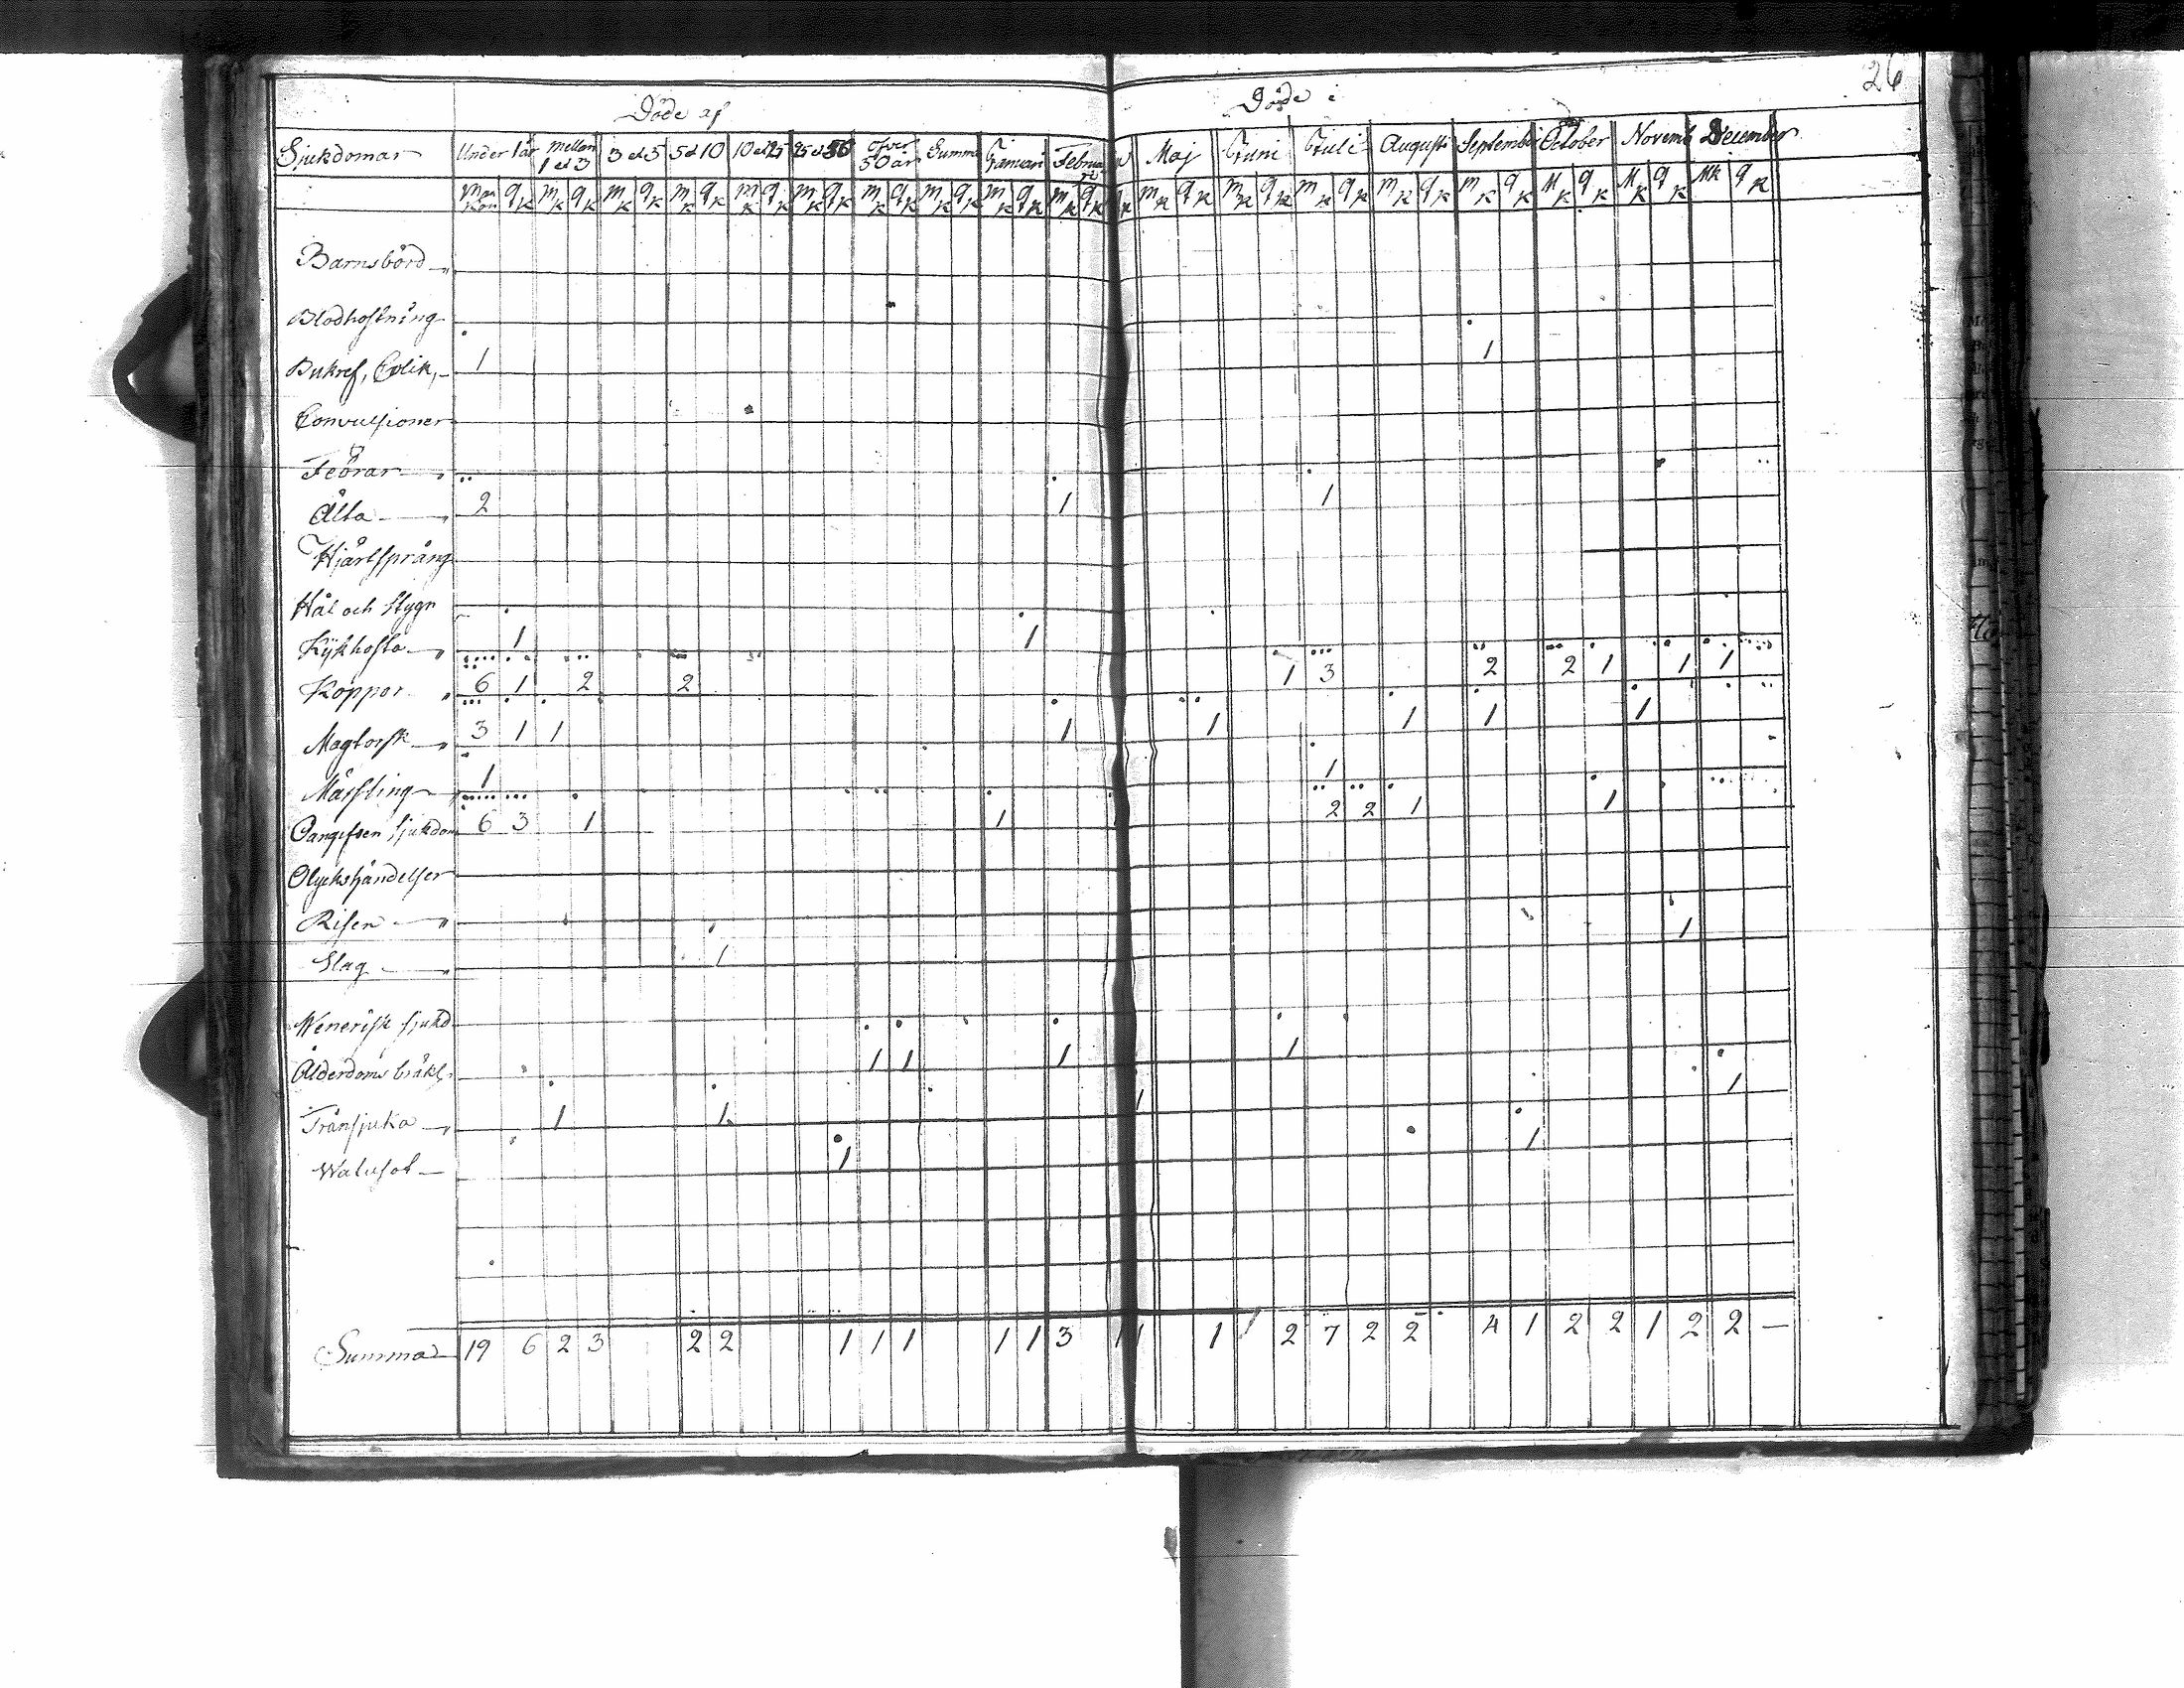 26
Döde af
Döde i
Sjukdomar Under 1 år mellan 1 et 3 3 et 5 5 et 10 10 et 25 25 et 50 öfver 50 år Summa Januari Februari Maj Juni Juli Augusti September October Novemb December
Man Kön q K m K q K m K q K m K q K m K q K m K q K m K q K m K q K m K q K m K q K K m K q K m K q K m K q K m K q K m K q K M K q K M K q K M K q K
Barnsbörd
Blodhostning
Bukref, Colik, 1 1
Convulsioner
Febrar
Ålta 2 1 1
Hjärtsprång
Hål och Stygn
Kikhosta 1 1
Koppor 6 1 2 2 1 3 2 2 1 1 1
Magtorsk 3 1 1 1 1 1 1 1
Mässling 1 1
Oangifven Sjukdom 6 3 1 1 2 2 1 1
Olyckshändelser
Risen 1
Slag 1
Wenerisk sjukd
Ålderdoms bräkl. 1 1 1 1 1
Trånsjuka 1 1 1 1
Watusot 1
Summa 19 6 2 3 2 2 1 1 1 1 1 3 1 1 1 1 2 7 2 2 4 1 2 2 1 2 2 —